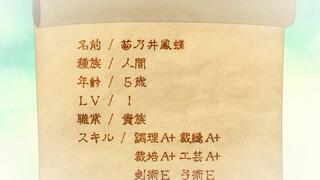 名前 / 苺乃井鳳蝶
種族 / 人間
年齢 / 5歳
LV / 1
職業 / 貴族
スキル / 調理A+ 裁縫A+
栽培A+ 工芸A+
剣術E 弓術E